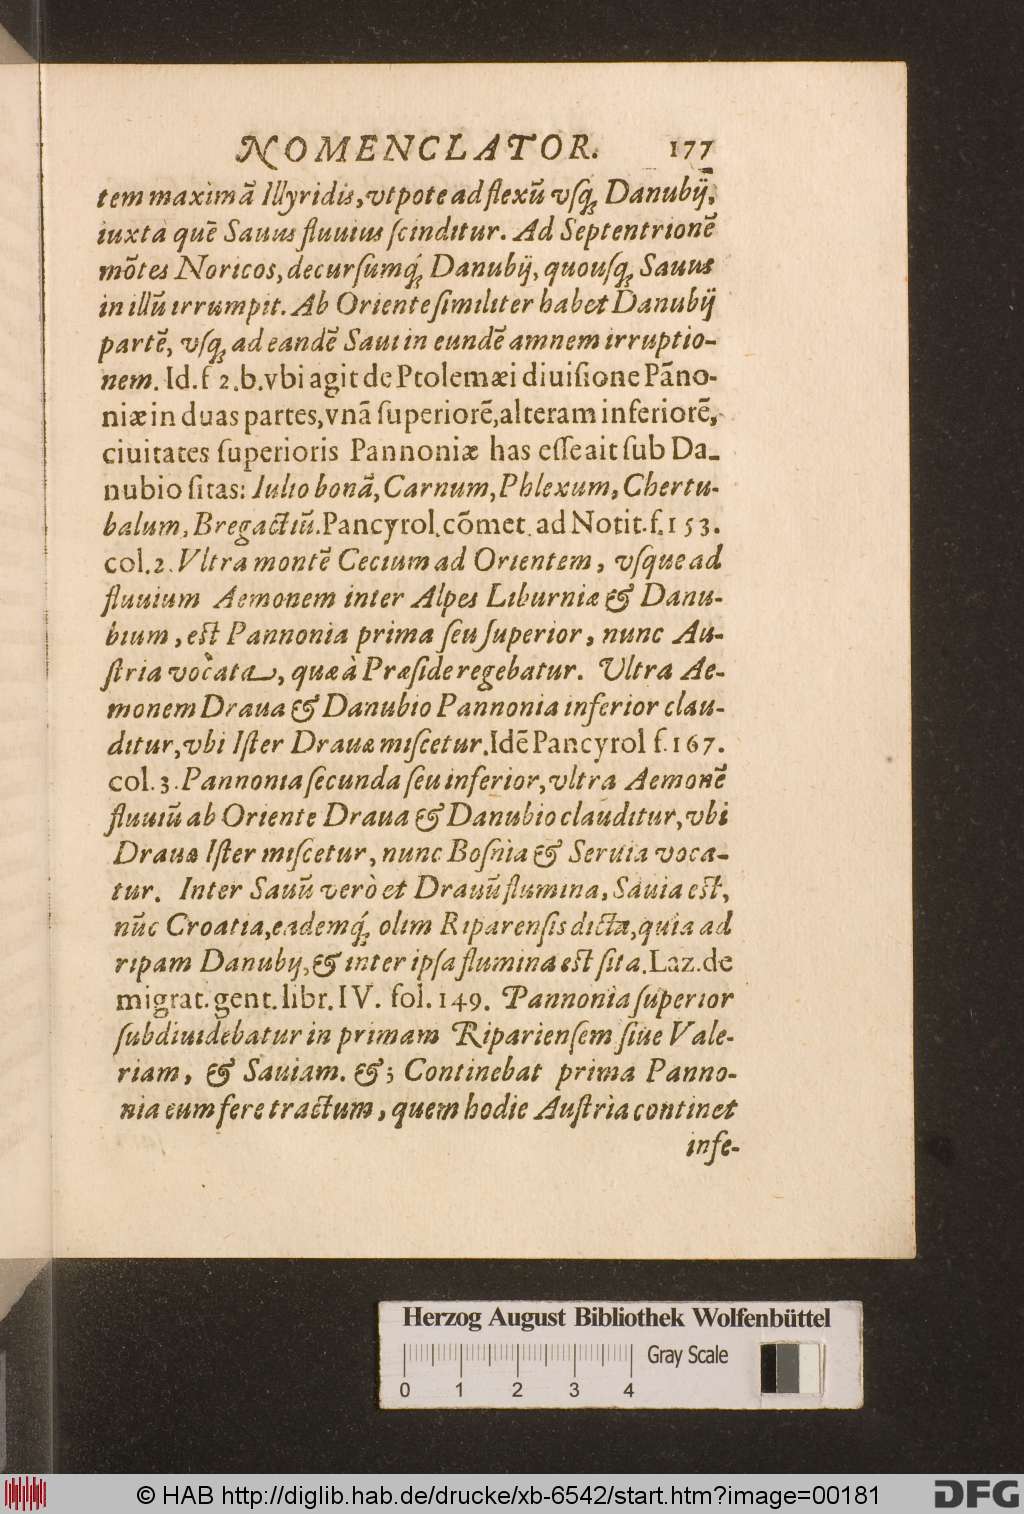 NOMENCLATOR. 177
tem maximā Illyridis, vtpote ad flexū vſq́ꝫ Danubij,
iuxta quē Sauus fluuius ſcinditur. Ad Septentrionē
mōtes Noricos, decurſumq́ꝫ Danubij, quouſqꝫ Sauus
in illū irrumpit. Ab Oriente ſimiliter habet Danubij
partē, vſqꝫ ad eandē Saui in eundē amnem irruptio-
nem. Id. f 2. b. vbi agit de Ptolemæi diuiſione Pāno-
niæ in duas partes, vnā ſuperiorē, alteram inferiorē,
ciuitates ſuperioris Pannoniæ has eſſe ait ſub Da-
nubio ſitas: Iulio bonā, Carnum, Phlexum, Chertu-
balum, Bregactiū. Pancyrol. cōmet. ad Notit. f. 153.
col. 2. Vltra montē Cecium ad Orientem, vſque ad
fluuium Aemonem inter Alpes Liburniæ & Danu-
bium, eſt Pannonia prima ſeu ſuperior, nunc Au-
ſtria vocata, quæ à Præſide regebatur. Vltra Ae-
monem Draua & Danubio Pannonia inferior clau-
ditur, vbi Iſter Drauæ miſcetur. Idē Pancyrol f. 167.
col. 3. Pannonia ſecunda ſeu inferior, vltra Aemonē
fluuiū ab Oriente Draua & Danubio clauditur, vbi
Drauæ Iſter miſcetur, nunc Boſnia & Seruia voca-
tur. Inter Sauū verò et Drauū flumina, Sauia eſt,
nūc Croatia, eademq́ꝫ olim Riparenſis dicta, quia ad
ripam Danubij, & inter ipſa flumina eſt ſita. Laz. de
migrat. gent. libr. IV. fol. 149. Pannonia ſuperior
ſubdiuidebatur in primam Riparienſem ſiue Vale-
riam, & Sauiam. &ꝫ Continebat prima Panno-
nia eum fere tractum, quem hodie Auſtria continet
infe-
Herzog August Bibliothek Wolfenbüttel
Gray Scale
0 1 2 3 4
© HAB http://diglib.hab.de/drucke/xb-6542/start.htm?image=00181
DFG